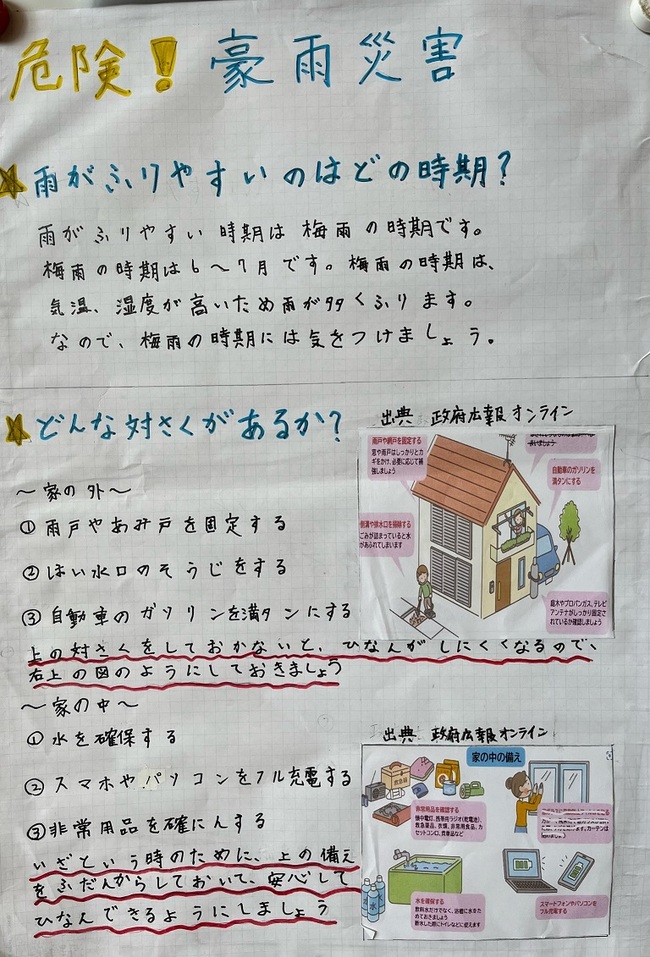 危険! 豪雨災害
雨がふりやすいのはどの時期?
雨がふりやすい時期は梅雨の時期です。
梅雨の時期は6〜7月です。梅雨の時期は、
気温、湿度が高いため雨が多くふります。
なので、梅雨の時期には気をつけましょう。
どんな対さくがあるか?
出典 政府広報オンライン
〜家の外〜
①雨戸やあみ戸を固定する
②はい水口のそうじをする
③自動車のガソリンを満タンにする
雨戸や網戸を固定する
窓や雨戸はしっかりとカ
ギをかけ、必要に応じて補
強しましょう
自動車のガソリンを
満タンにする
側溝や排水口を掃除する
ごみが詰まっていると水
があふれてしまいます
庭木やプロパンガス、テレビ
アンテナがしっかり固定さ
れているか確認しましょう
上の対さくをしておかないと、ひなんがしにくくなるので、
右上の図のようにしておきましょう
〜家の中〜
①水を確保する
②スマホやパソコンをフル充電する
③非常用品を確にんする
いざという時のために、上の備え
をふだんからしておいて、安心して
ひなんできるようにしましょう
出典 政府広報オンライン
家の中の備え
救急箱
非常用品を確認する
懐中電灯、携帯用ラジオ(乾電池)、
救急薬品、衣類、非常用食品、カ
セットコンロ、貴重品など
カーテンは
水
水を確保する
飲料水だけでなく、浴槽に水をた
めておきましょう
断水した際にトイレなどに使えます
スマートフォンやパソコンを
フル充電する